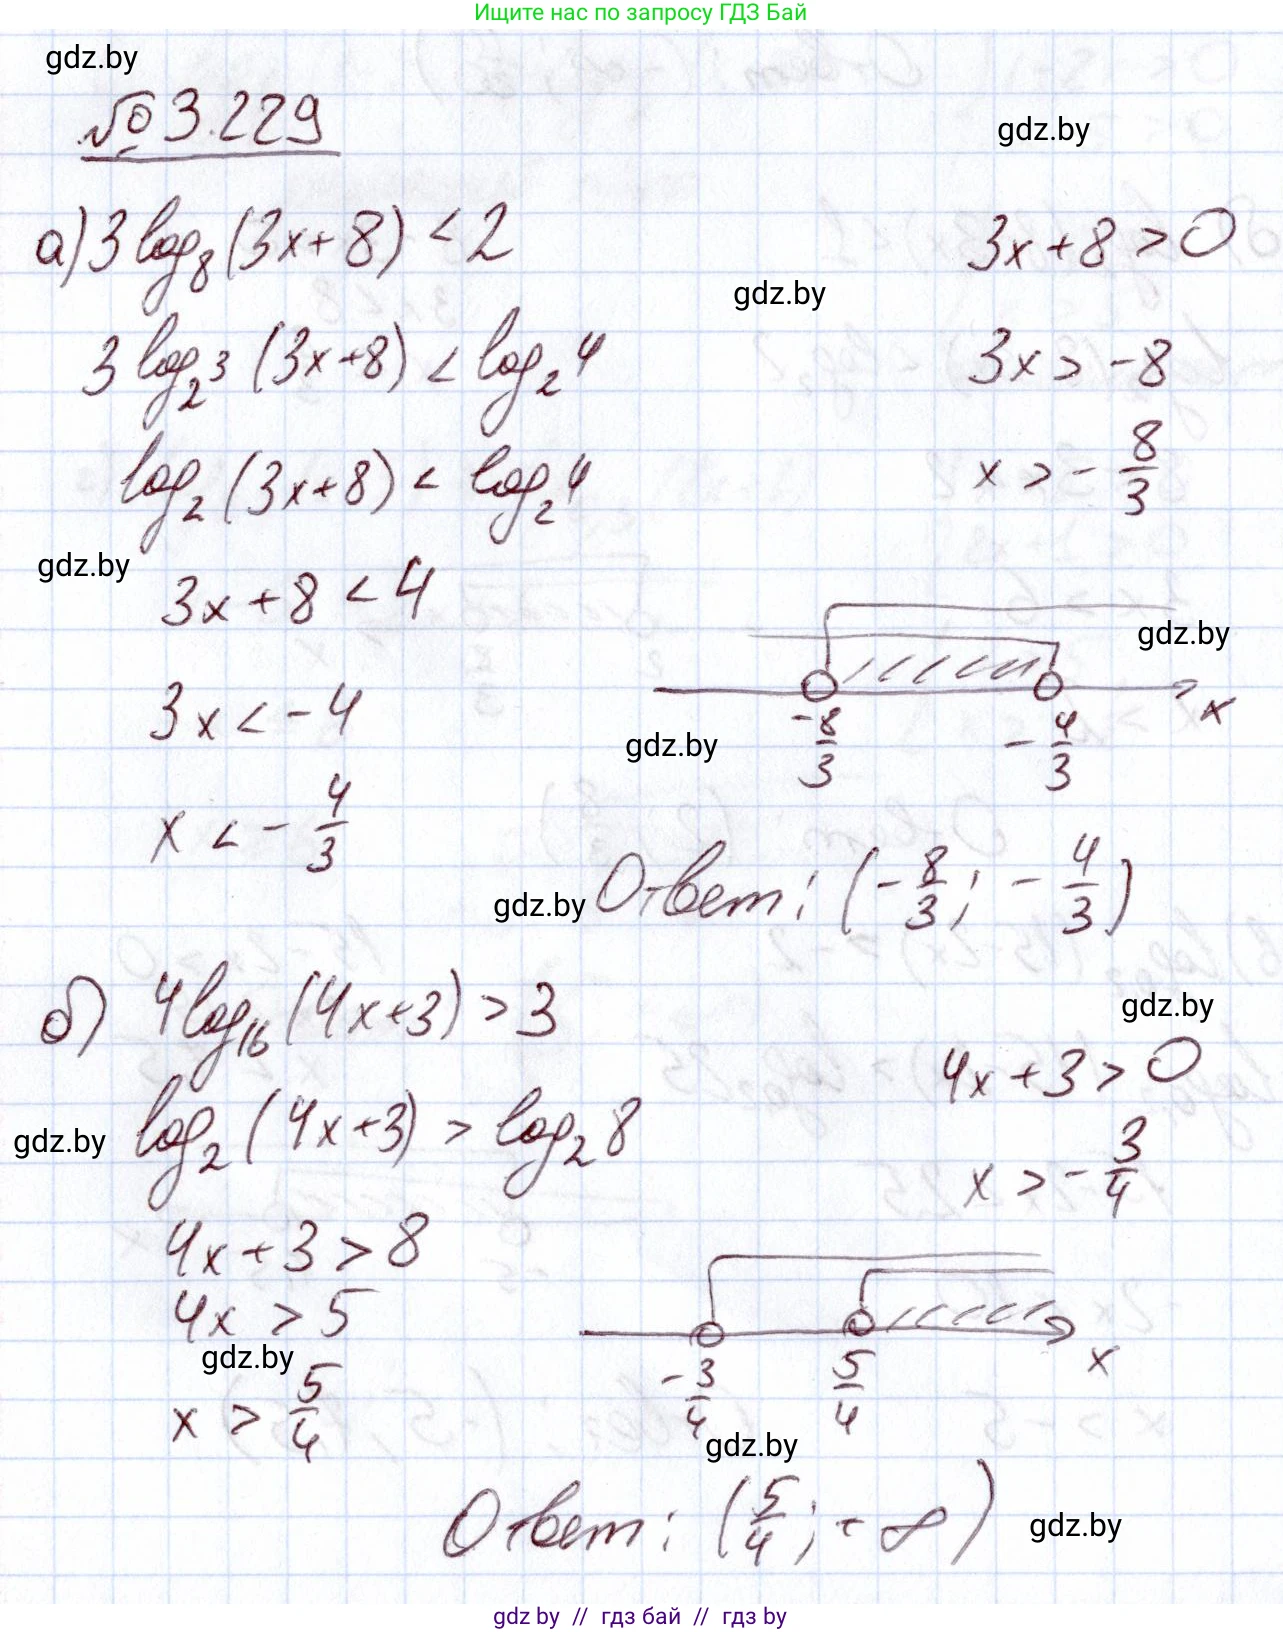 Ищите нас по запросу ГДЗ Бай
gdz.by
№ 3.229
gdz.by
а) 3 log₈ (3x + 8) < 2
3x + 8 > 0
gdz.by
3 log₂³ (3x + 8) < log₂ 4
3x > -8
log₂ (3x + 8) < log₂ 4
x > - 8/3
gdz.by
3x + 8 < 4
gdz.by
3x < -4
-8/3 - 4/3 x
gdz.by
x < - 4/3
gdz.by
Ответ: (- 8/3; - 4/3)
б) 4 log₁₆ (4x + 3) > 3
gdz.by
4x + 3 > 0
gdz.by
log₂ (4x + 3) > log₂ 8
x > - 3/4
4x + 3 > 8
4x > 5
gdz.by
-3/4 5/4 x
x > 5/4
gdz.by
Ответ: (5/4; + ∞)
gdz.by
gdz by // гдз бай // гдз by